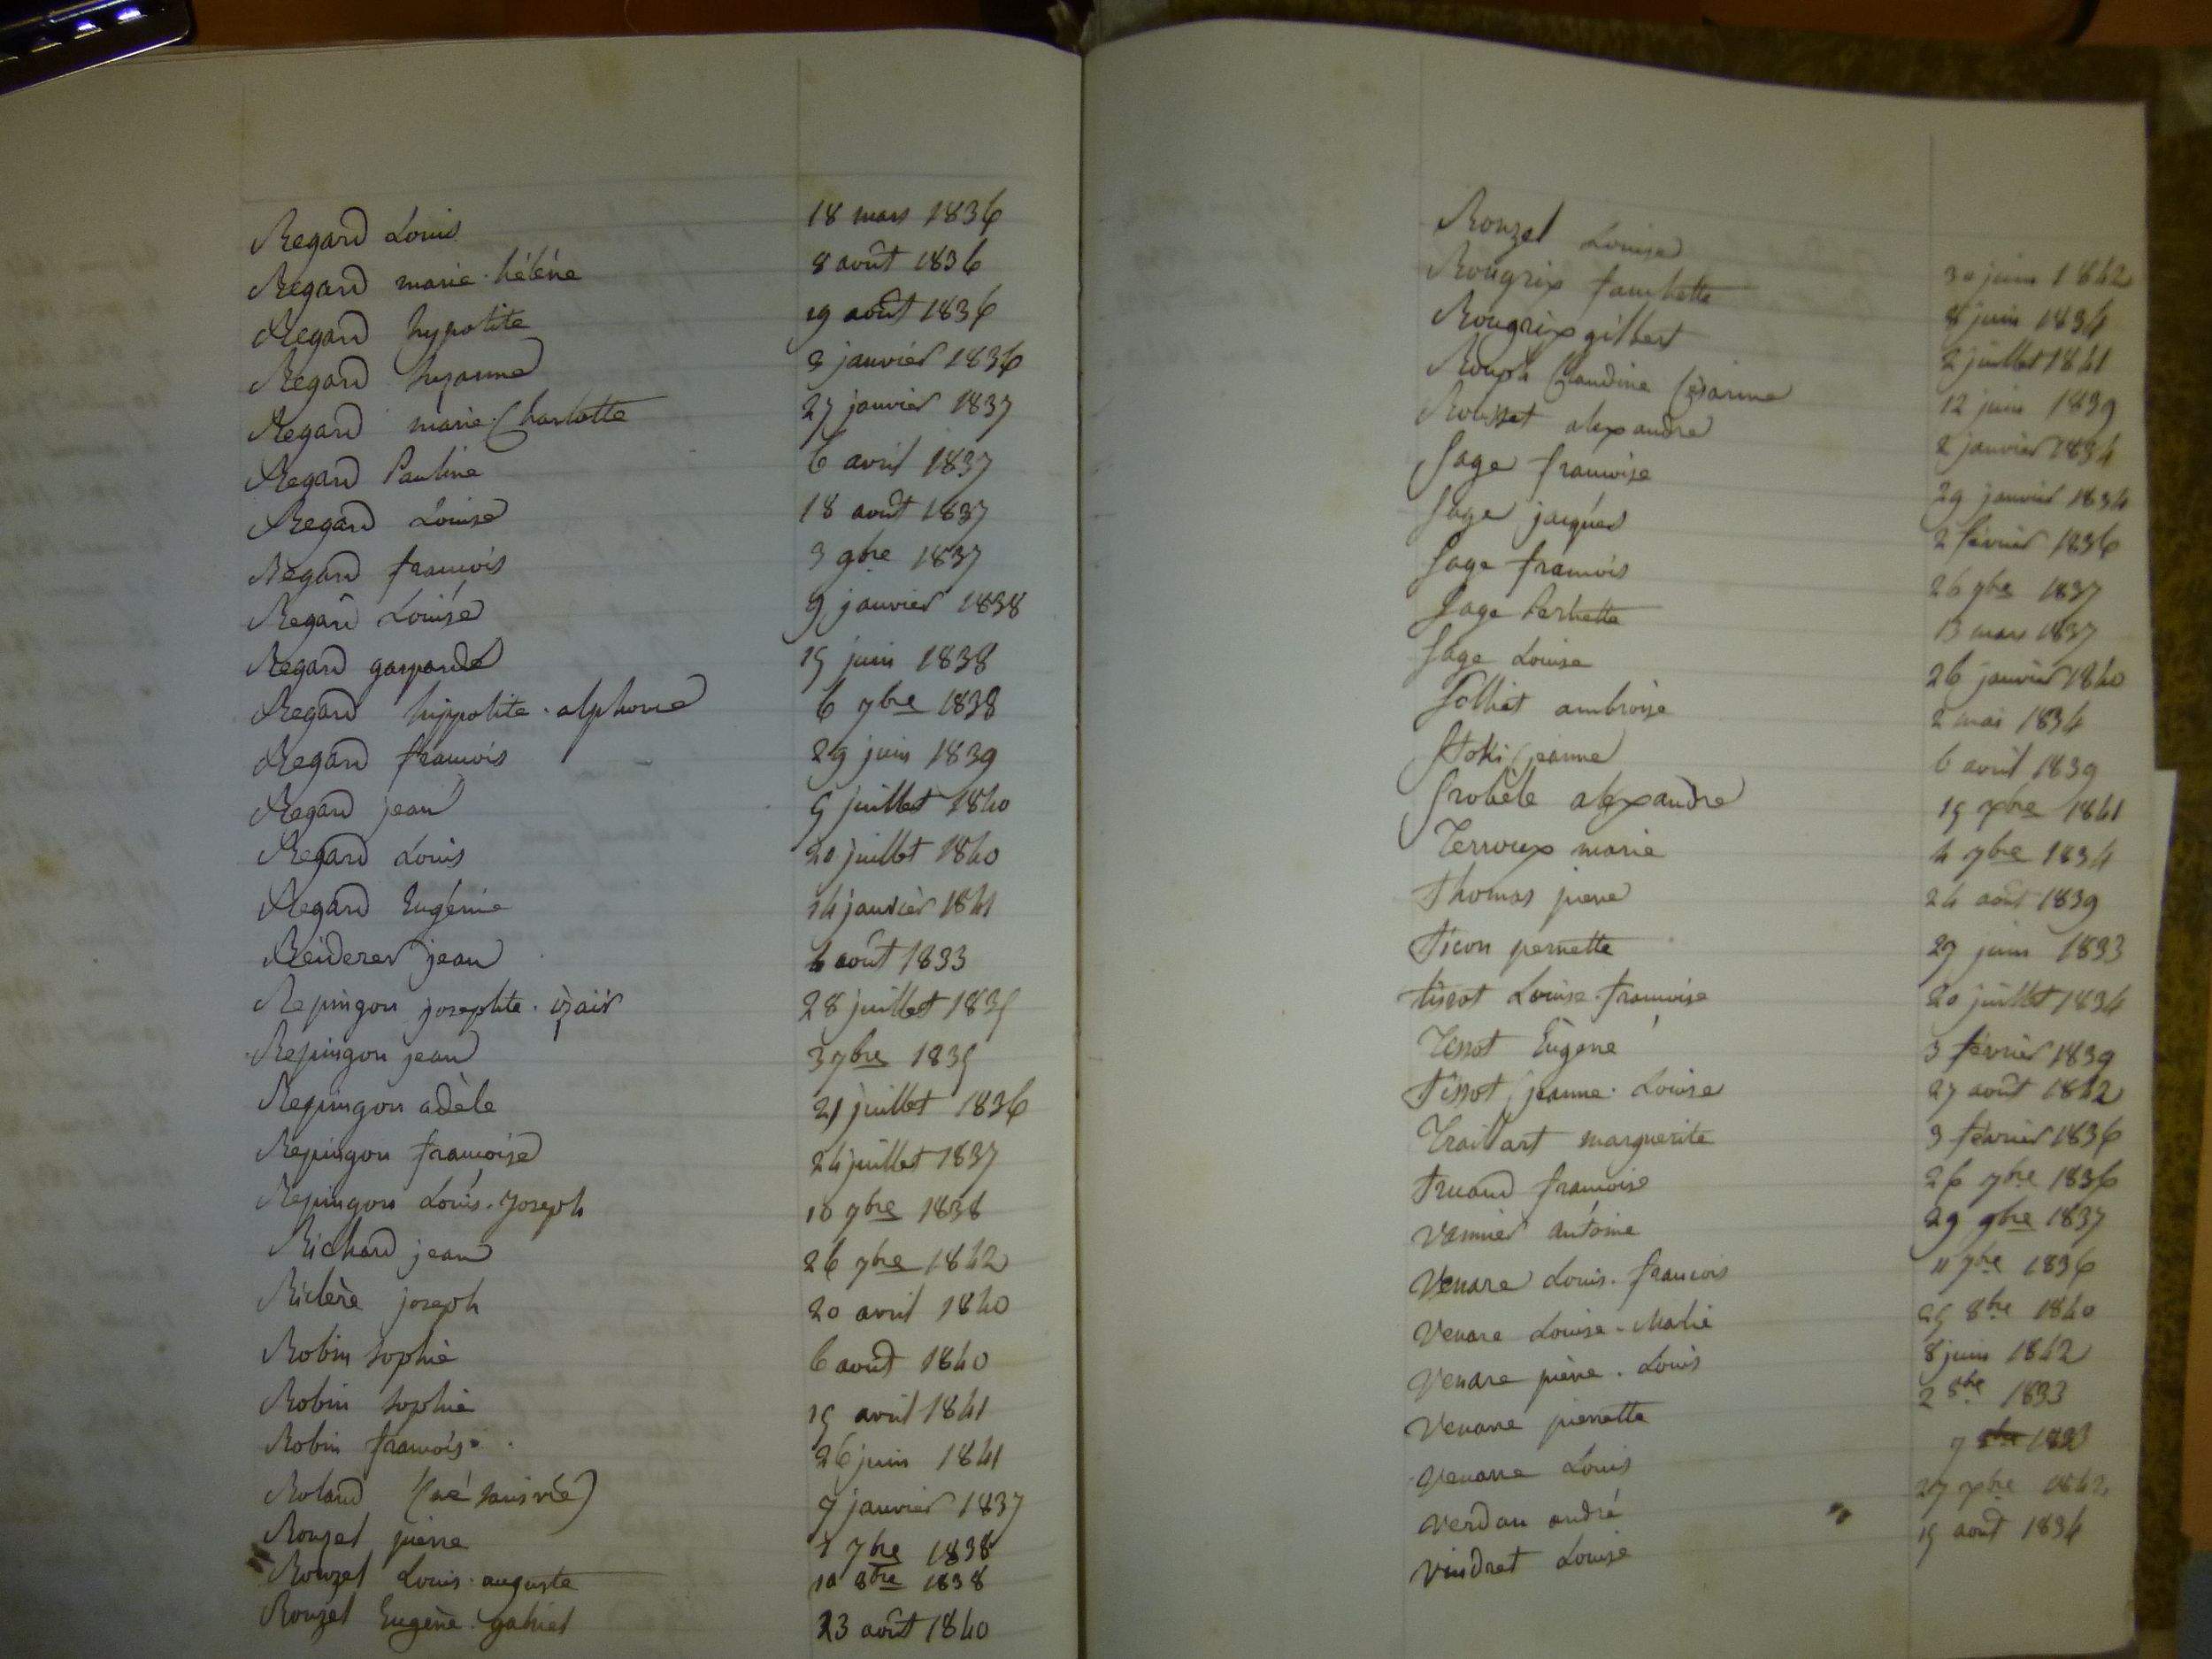 Regard Louis 18 mars 1836
Regard marie-hélène 8 août 1836
Regard hypolite 19 août 1836
Regard Suzanne 3 janvier 1836
Regard marie-Charlotte 27 janvier 1837
Regard Pauline 6 avril 1837
Regard Louise 18 août 1837
Regard francois 3 9bre 1837
Regard Louise 9 janvier 1838
Regard gasparde 15 juin 1838
Regard hippolite-alphonse 6 7bre 1838
Regard francois 29 juin 1839
Regard jean 5 juillet 1840
Regard Louis 20 juillet 1840
Regard Eugénie 14 janvier 1841
Reiderer jean 6 août 1833
Repingon josephte 28 juillet 1835
Repingon jean 3 7bre 1835
Repingon adèle 21 juillet 1836
Repingon francoise 24 juillet 1837
Repingon Louis-Joseph 10 7bre 1838
Richard jean 26 7bre 1842
joseph 20 avril 1840
Robin Sophie 6 août 1840
Robin Sophie 15 avril 1841
Robin francois 26 juin 1841
Roland (né sans vie) 7 janvier 1837
Rouzet pierre 7 7bre 1838
Rouzet Louis-auguste 10 8bre 1838
Rouzet Eugène-gabriel 23 août 1840
Rouzet Louise 30 juin 1842
Rougrix fanchette 8 juin 1834
Rougrix gilbert 2 juillet 1841
Rouph Claudine Césarine 12 juin 1839
Rousset alexandre 2 janvier 1834
Sage francoise 29 janvier 1834
Sage jacques 2 février 1836
Sage francois 26 9bre 1837
Sage 13 mars 1837
Sage Louise 26 janvier 1840
Solliet ambroise 2 mai 1834
Stoki jeanne 6 avril 1839
alexandre 15 xbre 1841
Terroux marie 4 7bre 1834
Thomas pierre 24 août 1839
Ticon pernette 27 juin 1833
tissot Louise-francoise 20 juillet 1834
Tissot Eugène 3 février 1839
Tissot jeanne-Louise 27 août 1842
Traillart marguerite 3 février 1836
Truand francoise 26 7bre 1836
Vannier antoine 29 9bre 1837
Venare Louis-francois 11 7bre 1836
Venare Louise-Marie 25 8bre 1840
Venare pierre-Louis 8 juin 1842
Venare pierrette 2 8bre 1833
Venare Louis 7 1833
Verdan andré 27 xbre 1842
Vindret Louise 15 août 1834